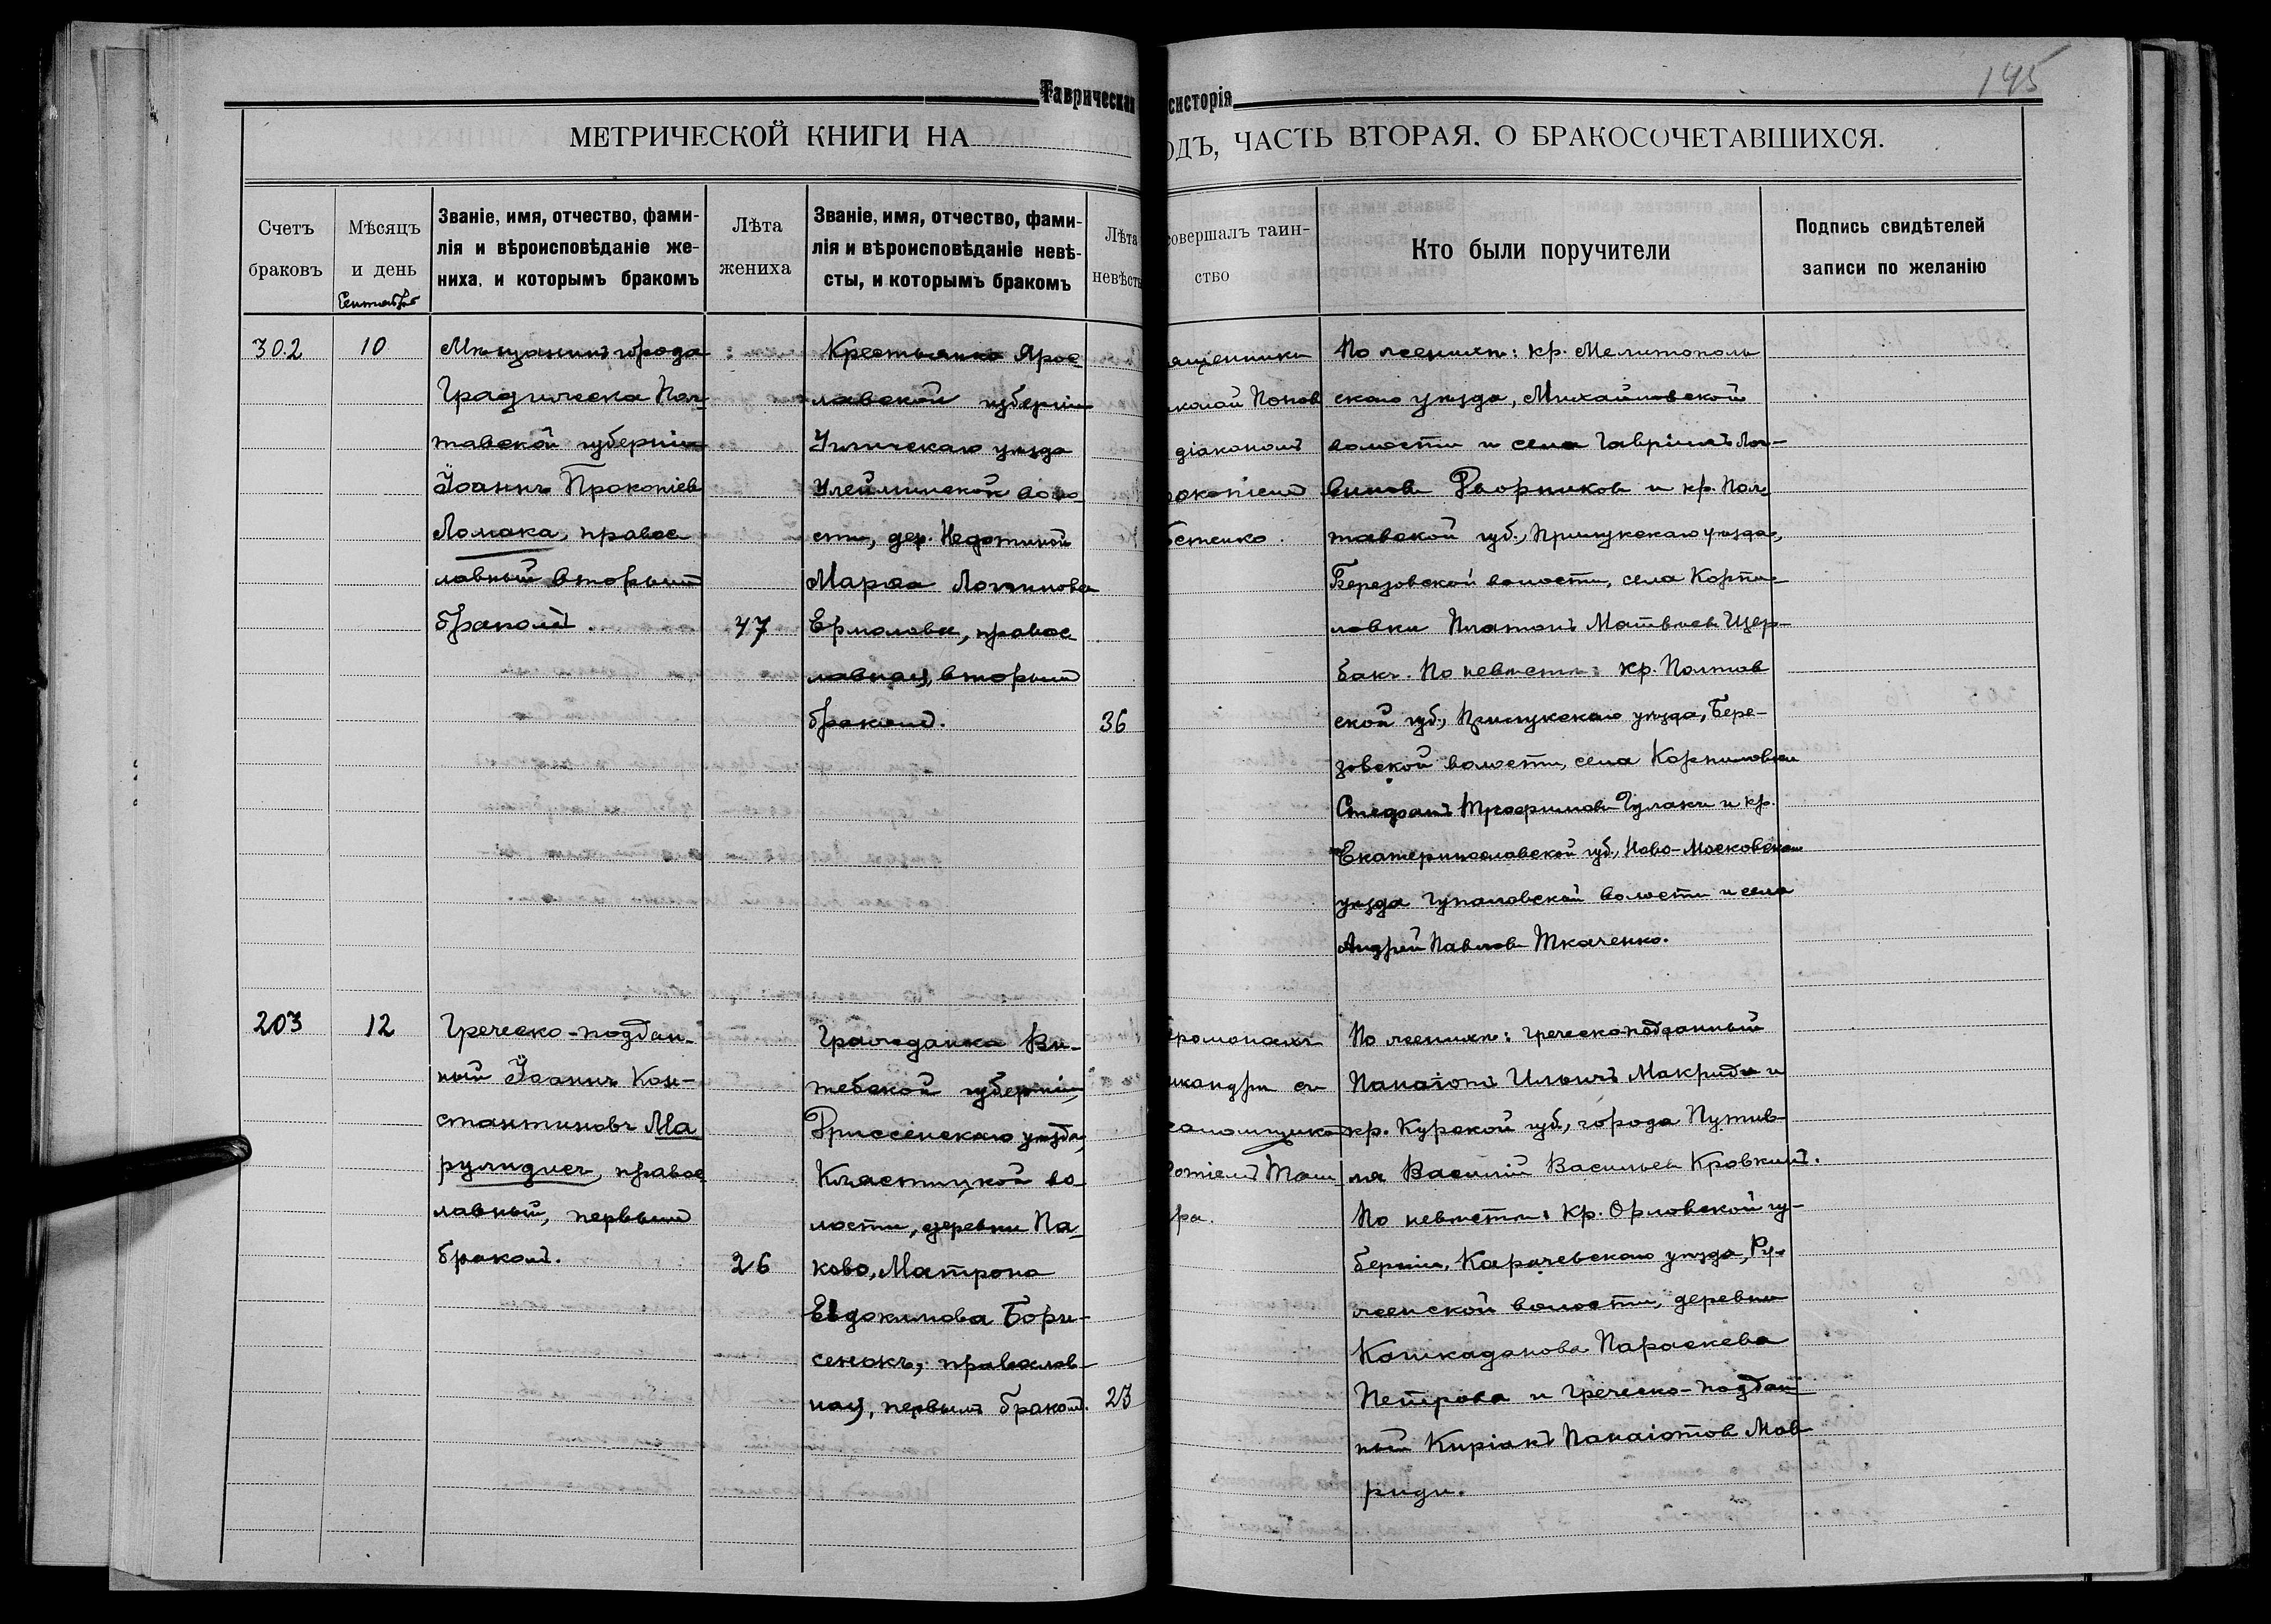 145
Таврическая
систорія
МЕТРИЧЕСКОЙ КНИГИ НА
ОДЪ, ЧАСТЬ ВТОРАЯ, О БРАКОСОЧЕТАВШИХСЯ.
Счетъ
браковъ
Мѣсяцъ
и день
Сентябрь
Званіе, имя, отчество, фами-
лія и вѣроисповѣданіе же-
ниха, и которымъ бракомъ
Лѣта
жениха
Званіе, имя, отчество, фами-
лія и вѣроисповѣданіе невѣ-
сты, и которымъ бракомъ
Лѣта
невѣсты
совершалъ таин-
ство
Кто были поручители
Подпись свидѣтелей
записи по желанію
302
10
Мѣщанинъ города
Градижска Пол-
тавской губерніи
Іоаннъ Прокопіев
Ломака, правос
лавный вторымъ
бракомъ.
47
Крестьянка Ярос
лавской губерніи
Угличскаго уѣзда
Улейминской воло
сти, дер.
Марѳа Логгинова
Ермолова, правос
лавная, вторымъ
бракомъ.
36
ященники
колай Попов
діакономъ
рокопіемъ
бетенко.
По женихѣ: кр. Мелитополь
скаго уѣзда, Михайловской
волости и села Гавріилъ Лог-
виновъ Дворников и кр. Пол
тавской губ., Прилукскаго уѣзда,
Березовской волости, села Корпи-
ловки Платонъ Матвѣев Щер-
бакъ. По невѣстѣ: кр. Полтав
ской губ., Прилукскаго уѣзда, Бере-
зовской волости, села Корниловки
Стефанъ Трофимовъ Гулакъ и кр.
Екатеринославской губ., Ново-Московскаго
уѣзда Гупаловской волости и села
Андрей Павловъ Ткаченко.
203
12
Греческо-поддан-
ный Іоаннъ Кон-
стантиновъ Ма
рулидисъ, правос
лавный, первымъ
бракомъ.
26
Гражданка Ви-
тебской губерніи,
Дриссенскаго уѣзда,
Кластицкой во-
лости, деревни Па
ково, Матрона
Евдокимова Бори-
сенокъ, православ-
ная, первымъ бракомъ.
23
еромонахъ
икандръ съ
саломщиком
отіемъ
ра.
По женихѣ: греческоподданный
Панаіотъ Ильичъ Макриди и
кр. Курской губ., города Путив-
ля Василій Васильевъ Кровкинъ.
По невѣстѣ: кр. Орловской гу-
берніи, Карачевскаго уѣзда, Ру-
женской волости, деревни
Кошкаданова Параскева
Петрова и греческо-поддан
ный Киріакъ Панаіотов Мав
риди.